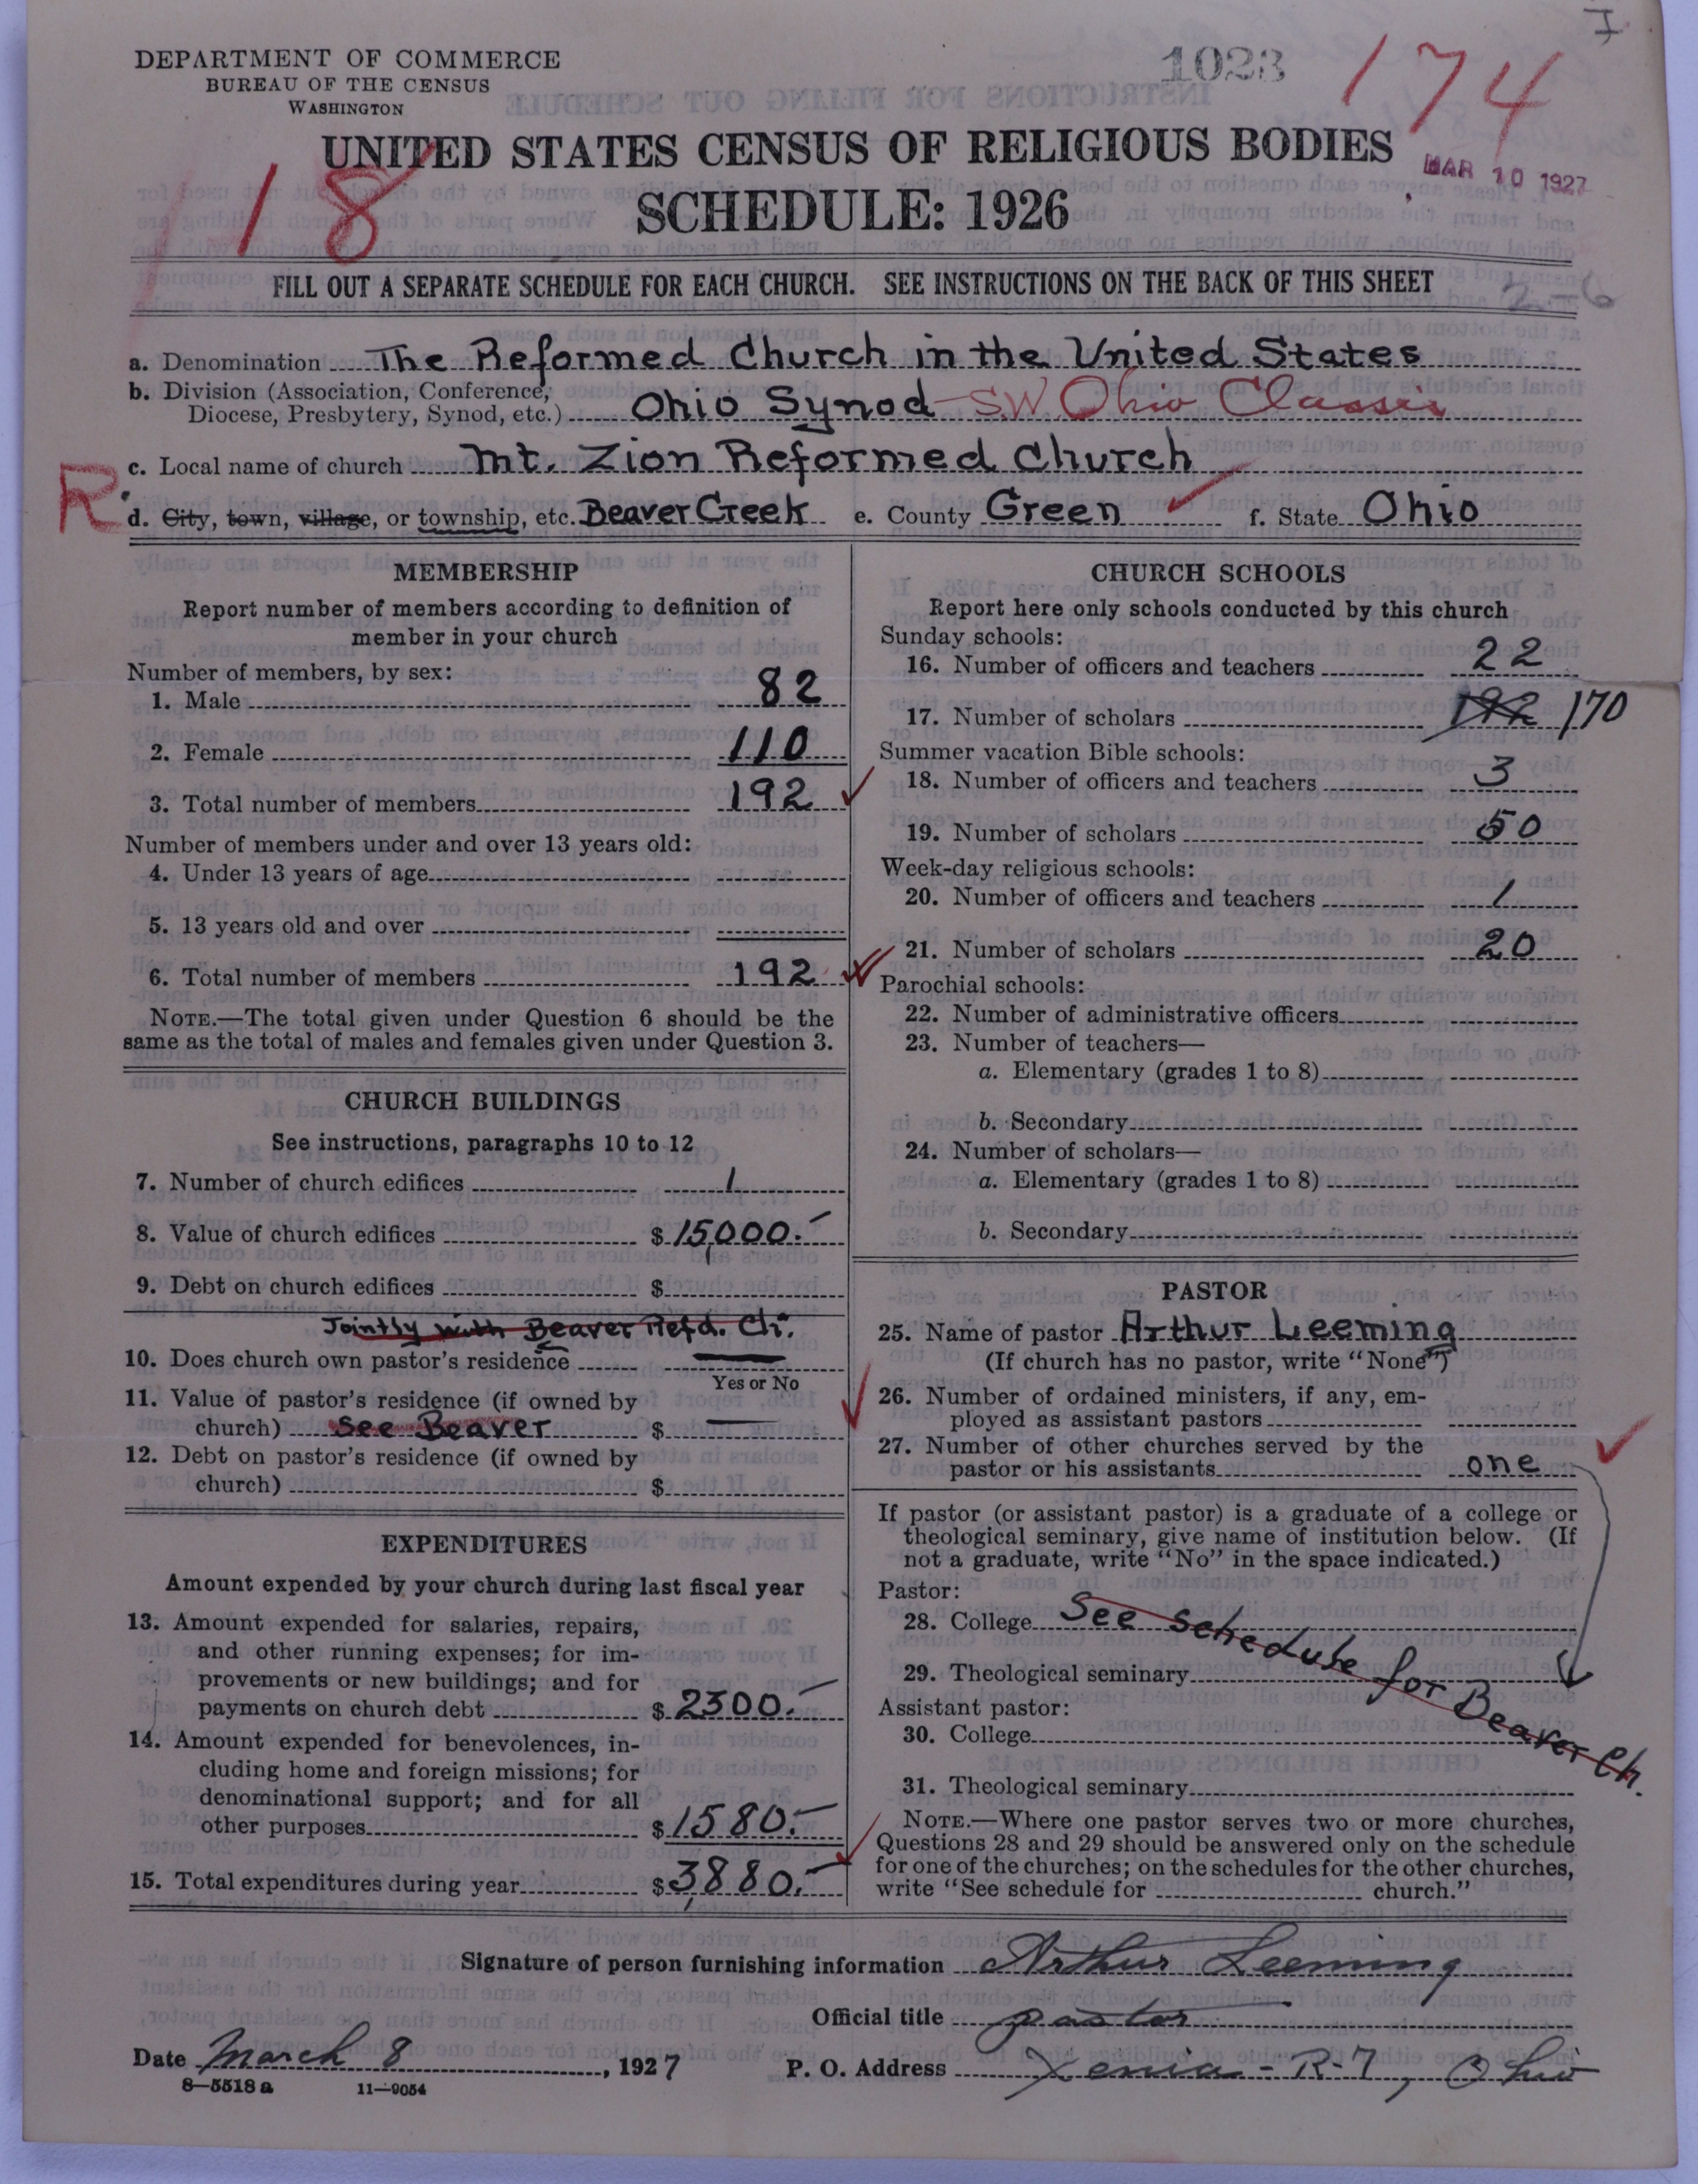 I
DEPARTMENT OF COMMERCE
BUREAU OF THE CENSUS
WASHINGTON
1023
174
UNITED STATES CENSUS OF RELIGIOUS BODIES
MAR 10 1927
18
SCHEDULE: 1926
FILL OUT A SEPARATE SCHEDULE FOR EACH CHURCH. SEE INSTRUCTIONS ON THE BACK OF THIS SHEET
2-6
a. Denomination The Reformed Church in the United States
b. Division (Association, Conference,
Diocese, Presbytery, Synod, etc.) Ohio Synod SW. Ohio Classis
c. Local name of church Mt. Zion Reformed Church
R
d. City, town, village, or township, etc. Beaver Creek e. County Green f. State Ohio
MEMBERSHIP
Report number of members according to definition of
member in your church
Number of members, by sex:
1. Male 82
2. Female 110
3. Total number of members 192
Number of members under and over 13 years old:
4. Under 13 years of age
5. 13 years old and over
6. Total number of members 192
NOTE.—The total given under Question 6 should be the
same as the total of males and females given under Question 3.
CHURCH BUILDINGS
See instructions, paragraphs 10 to 12
7. Number of church edifices 1
8. Value of church edifices $ 15,000.—
9. Debt on church edifices $
Jointly with Beaver Refd. Ch.
10. Does church own pastor's residence —
Yes or No
11. Value of pastor's residence (if owned by
church) See Beaver $ —
12. Debt on pastor's residence (if owned by
church) $
EXPENDITURES
Amount expended by your church during last fiscal year
13. Amount expended for salaries, repairs,
and other running expenses; for im-
provements or new buildings; and for
payments on church debt $ 2300.—
14. Amount expended for benevolences, in-
cluding home and foreign missions; for
denominational support; and for all
other purposes $ 1580.—
15. Total expenditures during year $ 3,880.—
CHURCH SCHOOLS
Report here only schools conducted by this church
Sunday schools:
16. Number of officers and teachers 22
17. Number of scholars 192 170
Summer vacation Bible schools:
18. Number of officers and teachers 3
19. Number of scholars 50
Week-day religious schools:
20. Number of officers and teachers 1
21. Number of scholars 20
Parochial schools:
22. Number of administrative officers
23. Number of teachers—
a. Elementary (grades 1 to 8)
b. Secondary
24. Number of scholars—
a. Elementary (grades 1 to 8)
b. Secondary
PASTOR
25. Name of pastor Arthur Leeming
(If church has no pastor, write "None")
26. Number of ordained ministers, if any, em-
ployed as assistant pastors
27. Number of other churches served by the
pastor or his assistants one
If pastor (or assistant pastor) is a graduate of a college or
theological seminary, give name of institution below. (If
not a graduate, write "No" in the space indicated.)
Pastor:
28. College See schedule for Beaver Ch.
29. Theological seminary
Assistant pastor:
30. College
31. Theological seminary
NOTE.—Where one pastor serves two or more churches,
Questions 28 and 29 should be answered only on the schedule
for one of the churches; on the schedules for the other churches,
write "See schedule for church."
Signature of person furnishing information Arthur Leeming
Official title pastor
Date March 8, 1927 P. O. Address Xenia - R-7, Ohio
8—5518 a 11—9054